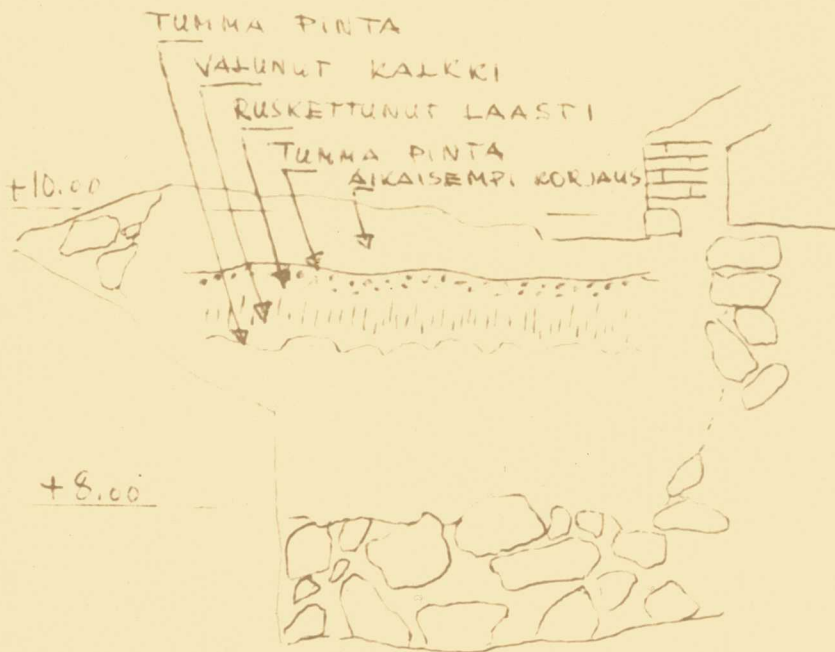 TUMMA PINTA
VALUNUT KALKKI
RUSKETTUNUT LAASTI
TUMMA PINTA
AIKAISEMPI KORJAUS
+10.00
+8.00